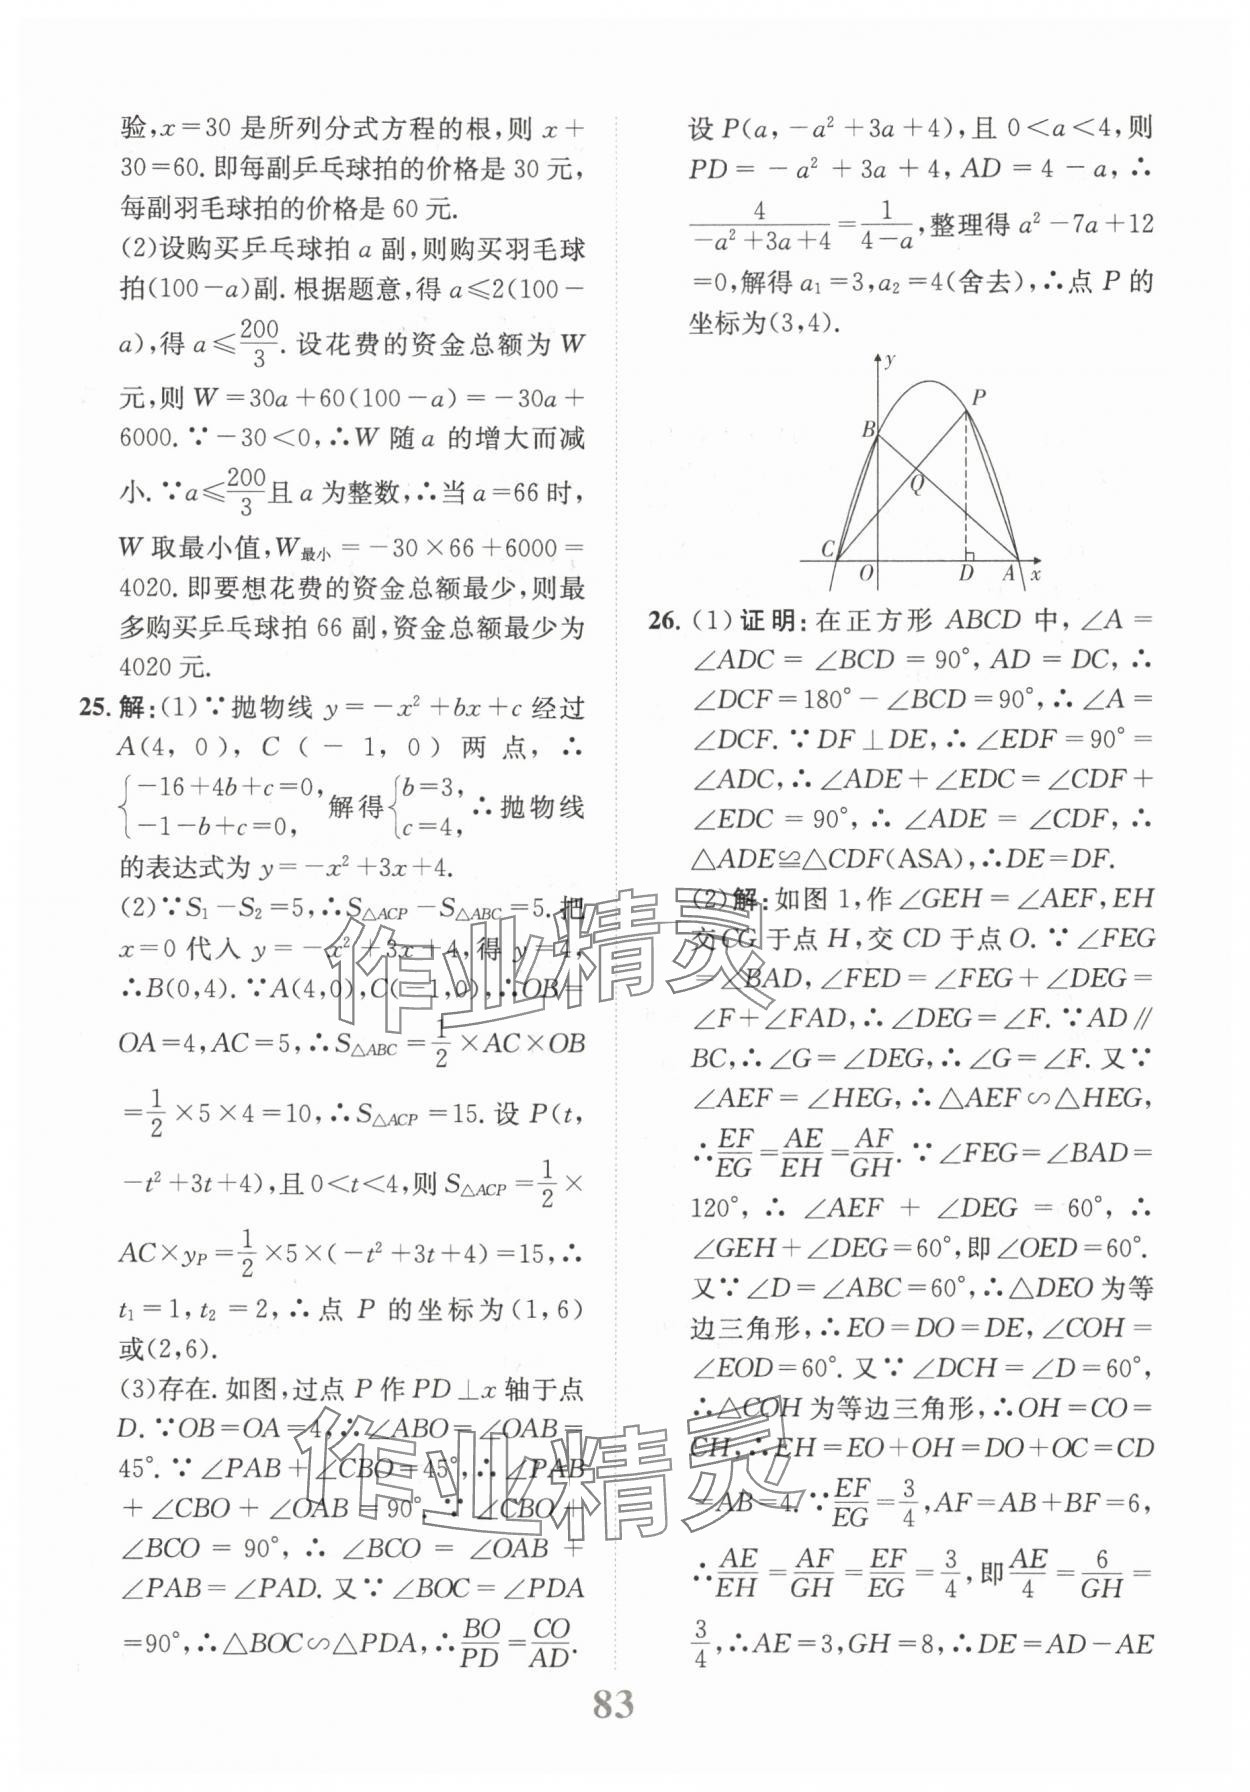 验,x=30 是所列分式方程的根,则 x+
30=60. 即每副乒乓球拍的价格是 30 元,
每副羽毛球拍的价格是 60 元.
(2)设购买乒乓球拍 a 副,则购买羽毛球
拍(100-a)副. 根据题意,得 a≤2(100-
a),得 a≤200/3. 设花费的资金总额为 W
元,则 W=30a+60(100-a)=-30a+
6000. ∵-30<0,∴W 随 a 的增大而减
小. ∵a≤200/3且 a 为整数,∴当 a=66 时,
W 取最小值,W最小=-30×66+6000=
4020. 即要想花费的资金总额最少,则最
多购买乒乓球拍 66 副,资金总额最少为
4020 元.
25. 解:(1)∵抛物线 y=-x²+bx+c 经过
A(4,0),C(-1,0)两点,∴
{-16+4b+c=0, -1-b+c=0, 解得{b=3, c=4, ∴抛物线
的表达式为 y=-x²+3x+4.
(2)∵S₁-S₂=5,∴S△ACP-S△ABC=5. 把
x=0 代入 y=-x²+3x+4,得 y=4,
∴B(0,4). ∵A(4,0),C(-1,0),∴OB=
OA=4,AC=5,∴S△ABC=1/2×AC×OB
=1/2×5×4=10,∴S△ACP=15. 设 P(t,
-t²+3t+4),且 0<t<4,则 S△ACP=1/2×
AC×yP=1/2×5×(-t²+3t+4)=15,∴
t₁=1,t₂=2,∴点 P 的坐标为(1,6)
或(2,6).
(3)存在. 如图,过点 P 作 PD⊥x 轴于点
D. ∵OB=OA=4,∴∠ABO=∠OAB=
45°. ∵∠PAB+∠CBO=45°,∴∠PAB
+∠CBO+∠OAB=90°. ∵∠CBO+
∠BCO=90°,∴∠BCO=∠OAB+
∠PAB=∠PAD. 又∵∠BOC=∠PDA
=90°,∴△BOC∽△PDA,∴BO/PD=CO/AD.
设 P(a,-a²+3a+4),且 0<a<4,则
PD=-a²+3a+4,AD=4-a,∴
4/(-a²+3a+4)=1/(4-a),整理得 a²-7a+12
=0,解得 a₁=3,a₂=4(舍去),∴点 P 的
坐标为(3,4).
y
P
B
Q
C
O
D
A
x
26. (1)证明:在正方形 ABCD 中,∠A=
∠ADC=∠BCD=90°,AD=DC,∴
∠DCF=180°-∠BCD=90°,∴∠A=
∠DCF. ∵DF⊥DE,∴∠EDF=90°=
∠ADC,∴∠ADE+∠EDC=∠CDF+
∠EDC=90°,∴∠ADE=∠CDF,∴
△ADE≌△CDF(ASA),∴DE=DF.
(2)解:如图 1,作∠GEH=∠AEF,EH
交 CG 于点 H,交 CD 于点 O. ∵∠FEG
=∠BAD,∠FED=∠FEG+∠DEG=
∠F+∠FAD,∴∠DEG=∠F. ∵AD∥
BC,∴∠G=∠DEG,∴∠G=∠F. 又∵
∠AEF=∠HEG,∴△AEF∽△HEG,
∴EF/EG=AE/EH=AF/GH. ∵∠FEG=∠BAD=
120°,∴∠AEF+∠DEG=60°,∴
∠GEH+∠DEG=60°,即∠OED=60°.
又∵∠D=∠ABC=60°,∴△DEO 为等
边三角形,∴EO=DO=DE,∠COH=
∠EOD=60°. 又∵∠DCH=∠D=60°,
∴△COH 为等边三角形,∴OH=CO=
CH,∴EH=EO+OH=DO+OC=CD
=AB=4. ∵EF/EG=3/4,AF=AB+BF=6,
∴AE/EH=AF/GH=EF/EG=3/4,即AE/4=6/GH=
3/4,∴AE=3,GH=8,∴DE=AD-AE
83
作业精灵
作业精灵